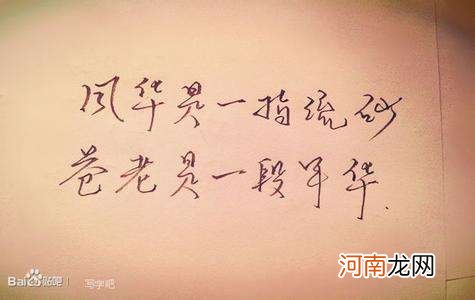 风华是一指流砂
苍老是一段年华.
Baidu贴吧 | 写字吧
河南龙网